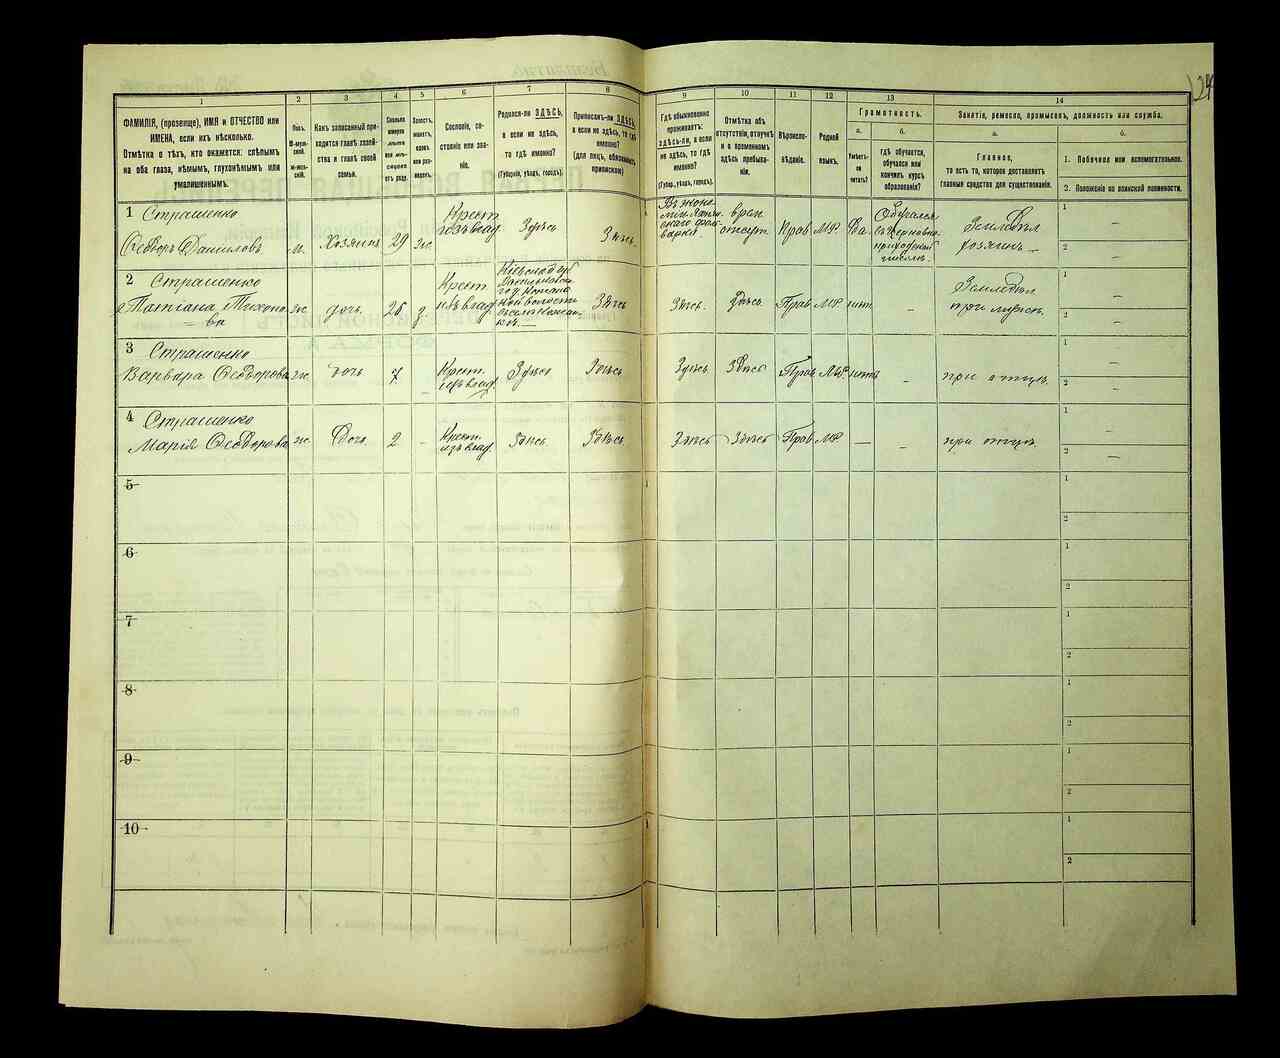 24
1
2
3
4
5
6
7
8
9
10
11
12
13
14
ФАМИЛІЯ, (прозвище), ИМЯ и ОТЧЕСТВО или
ИМЕНА, если ихъ нѣсколько.
Отмѣтка о тѣхъ, кто окажется: слѣпымъ
на оба глаза, нѣмымъ, глухонѣмымъ или
умалишеннымъ.
Полъ.
М-муж-
ской.
Ж-жен-
скій.
Какъ записанный при-
ходится главѣ хозяй-
ства и главѣ своей
семьи.
Сколько
минуло
лѣтъ
или мѣ-
сяцевъ
отъ роду.
Холостъ,
женатъ,
вдовъ
или раз-
веденъ.
Сословіе, со-
стояніе или зва-
ніе.
Родился-ли ЗДѢСЬ,
а если не здѣсь,
то гдѣ именно?
(Губернія, уѣздъ, городъ).
Приписанъ-ли ЗДѢСЬ,
а если не здѣсь, то гдѣ
именно?
(для лицъ, обязанныхъ
припискою)
Гдѣ обыкновенно
проживаетъ:
здѣсь-ли, а если
не здѣсь, то гдѣ
именно?
(Губер., уѣздъ, городъ).
Отмѣтка объ
отсутствіи, отлучкѣ
и о временномъ
здѣсь пребыва-
ніи.
Вѣроиспо-
вѣданіе.
Родной
языкъ.
Грамотность.
а.
б.
Умѣетъ-
ли
читать?
гдѣ обучается,
обучался или
кончилъ курсъ
образованія?
Занятіе, ремесло, промыселъ, должность или служба.
а.
б.
Главное,
то есть то, которое доставляетъ
главныя средства для существованія.
1. Побочное или вспомогательное.
2. Положеніе по воинской повинности.
1 Страшенко
Ѳеодоръ Даниловъ
м.
Хозяинъ
29
ж.
Крест.
изъ влад.
Здѣсь
Здѣсь.
врем.
отсут.
Прав.
МР.
Да.
Обучался
приходской
Земледѣл.
хозяинъ
1
2
2 Страшенко
Татіана Тихоно-
ва
ж.
26
Крест.
изъ влад.
Здѣсь
Здѣсь.
Здѣсь.
Прав
МР.
нѣтъ
-
Земледѣл
при мужѣ.
1
-
2
-
3 Страшенко
Варвара Ѳеодорова
ж.
дочь
7
-
Крест.
изъ влад.
Здѣсь
Здѣсь
Здѣсь.
Здѣсь
Прав.
МР.
нѣтъ
-
при отцѣ.
1
-
2
-
4 Страшенко
Марія Ѳеодорова
ж.
Дочь
2
-
Крест.
изъ влад.
Здѣсь.
Здѣсь
Здѣсь
Здѣсь
Прав
МР.
-
-
при отцѣ.
1
-
2
-
5
1
2
6
1
2
7
1
2
8
1
2
9
1
2
10
1
2